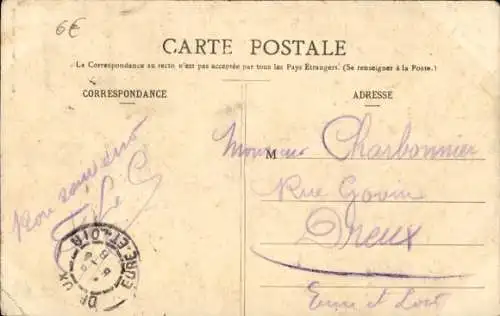 6€
CARTE POSTALE
La Correspondance au recto n'est pas acceptée par tous les Pays Étrangers. (Se renseigner à la Poste.)
CORRESPONDANCE
ADRESSE
Bon souvenir
M Monsieur Charbonnier
Rue Govin
Dreux
Eure et Loir
DREUX
EURE-ET-LOIR